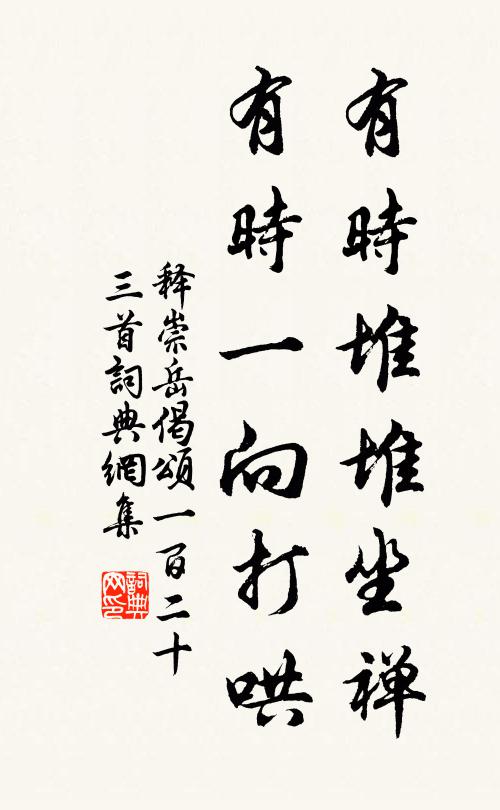 有時堆堆坐禅
有時一向打哄
释崇岳偈頌一百二十
三首詞典網集
詞典网印